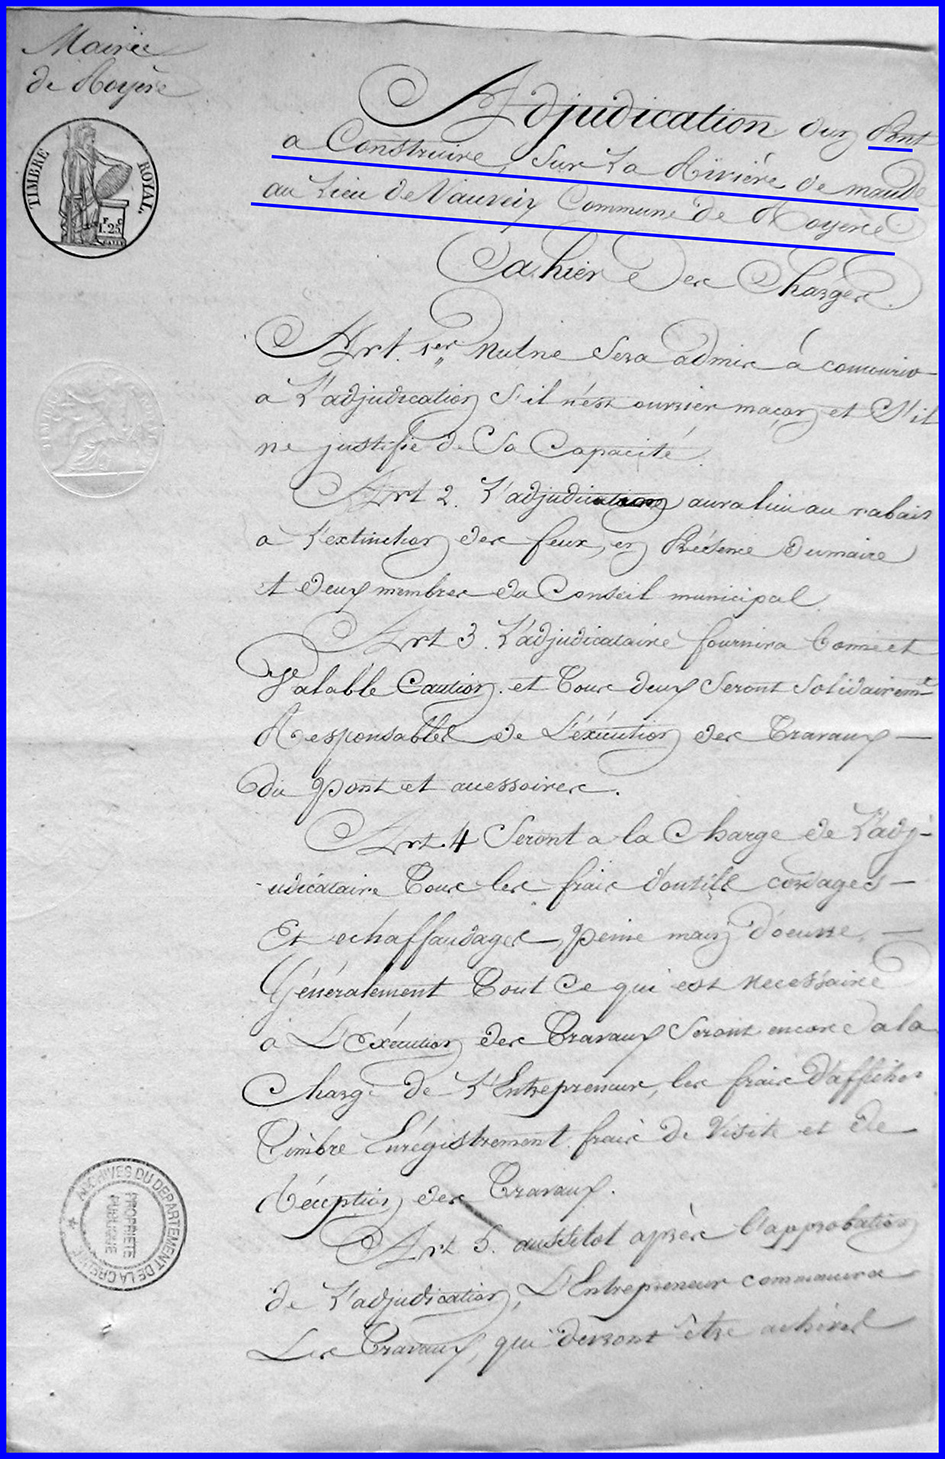 Mairie
de Royère
TIMBRE ROYAL
1.25
Adjudication d'un Pont
a Construire, Sur La Rivière de maulde
au Lieu de Vauveix Commune de Royère
Cahier des Charges.
Art. 1er Nul ne Sera admis à concourir
a L'adjudication S'il n'est ouvrier maçon et S'il
ne justifie de Sa Capacité.
Art 2. L'adjudication aura lieu au rabais
a L'extinction des feux, en Présence du maire
et deux membres du Conseil municipal.
Art 3. L'adjudicataire fournira bonne et
Valable Caution. et Tous deux Seront Solidairemt
Responsables de L'éxécution des Travaux —
du pont et accessoires.
Art. 4 Seront a la Charge de L'adj-
udicataire Tous les frais d'outils cordages —
Et echaffaudages — peine main d'oeuvre, —
Généralement Tout Ce qui est Necessaire
à L'Exécution des Travaux Seront encore a la
Charge de L'Entrepreneur, les frais D'affiches
Timbre Enrégistrement frais de Visite et de
Réception des Travaux.
Art 5. aussitot après l'approbation
de L'adjudication, L'Entrepreneur commencera
Les Travaux, qui devront être achevés
ARCHIVES DU DEPARTEMENT DE LA CREUSE
PROPRIÉTÉ
PUBLIQUE